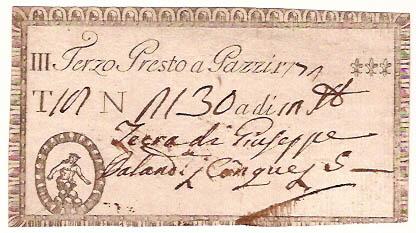 III Terzo Presto a Pazzi 177
T 101 N 1130 a di
Zecca di Giuseppe
Calandi Cinque 5